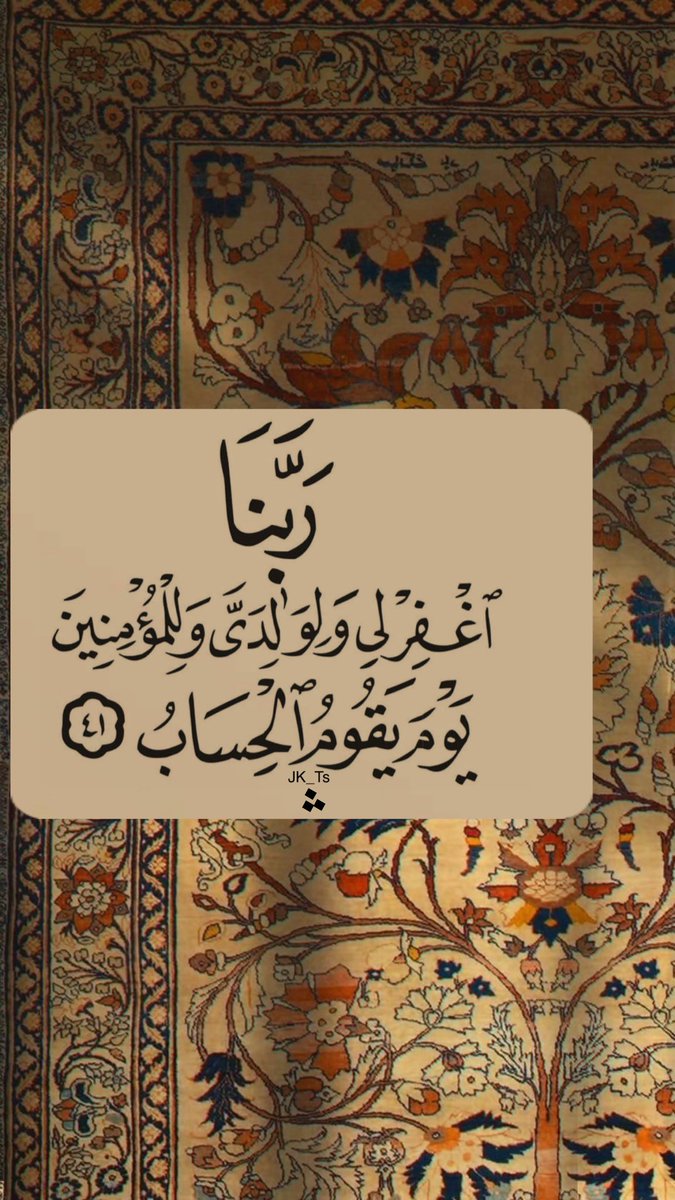 رَبَّنَا
ٱغْفِرْ لِي وَلِوَٰلِدَيَّ وَلِلْمُؤْمِنِينَ
يَوْمَ يَقُومُ ٱلْحِسَابُ ٤١
JK_Ts